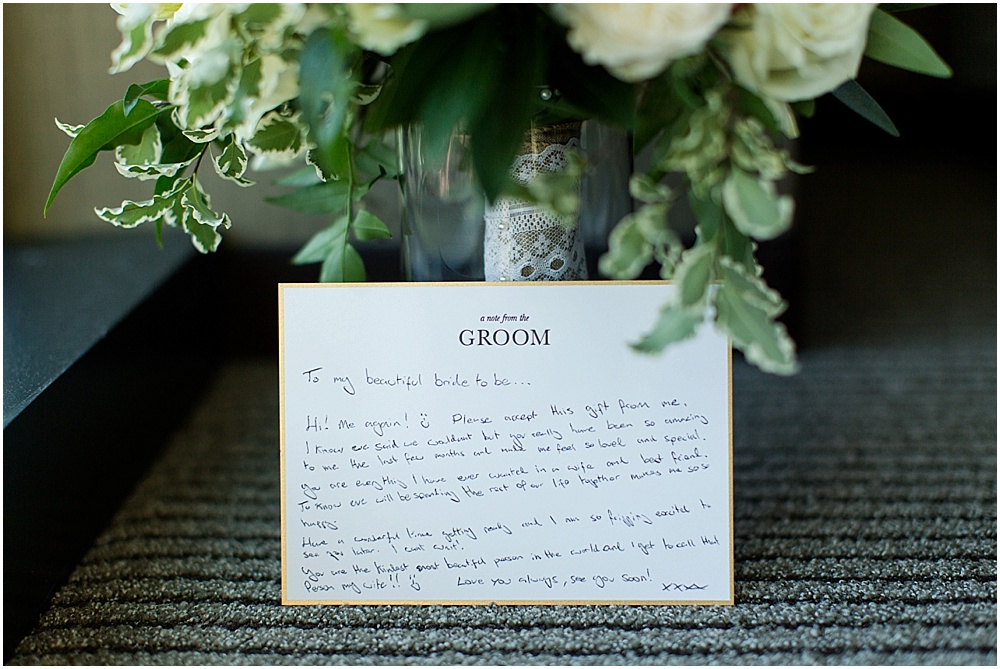 a note from the
GROOM
To my beautiful bride to be...
Hi! Me again! Please accept this gift from me.
I know we said we wouldnt but you really have been so amazing
to me the last few months and make me feel so loved and special.
You are everything I have ever wanted in a wife and best friend.
To know we will be spending the rest of our life together makes me so so
happy
Have a wonderful time getting ready and I am so fripping excited to
see you later. I cant wait!
You are the kindest most beautiful person in the world and I get to call that
Person my wife!! Love you always, see you soon! xxxx